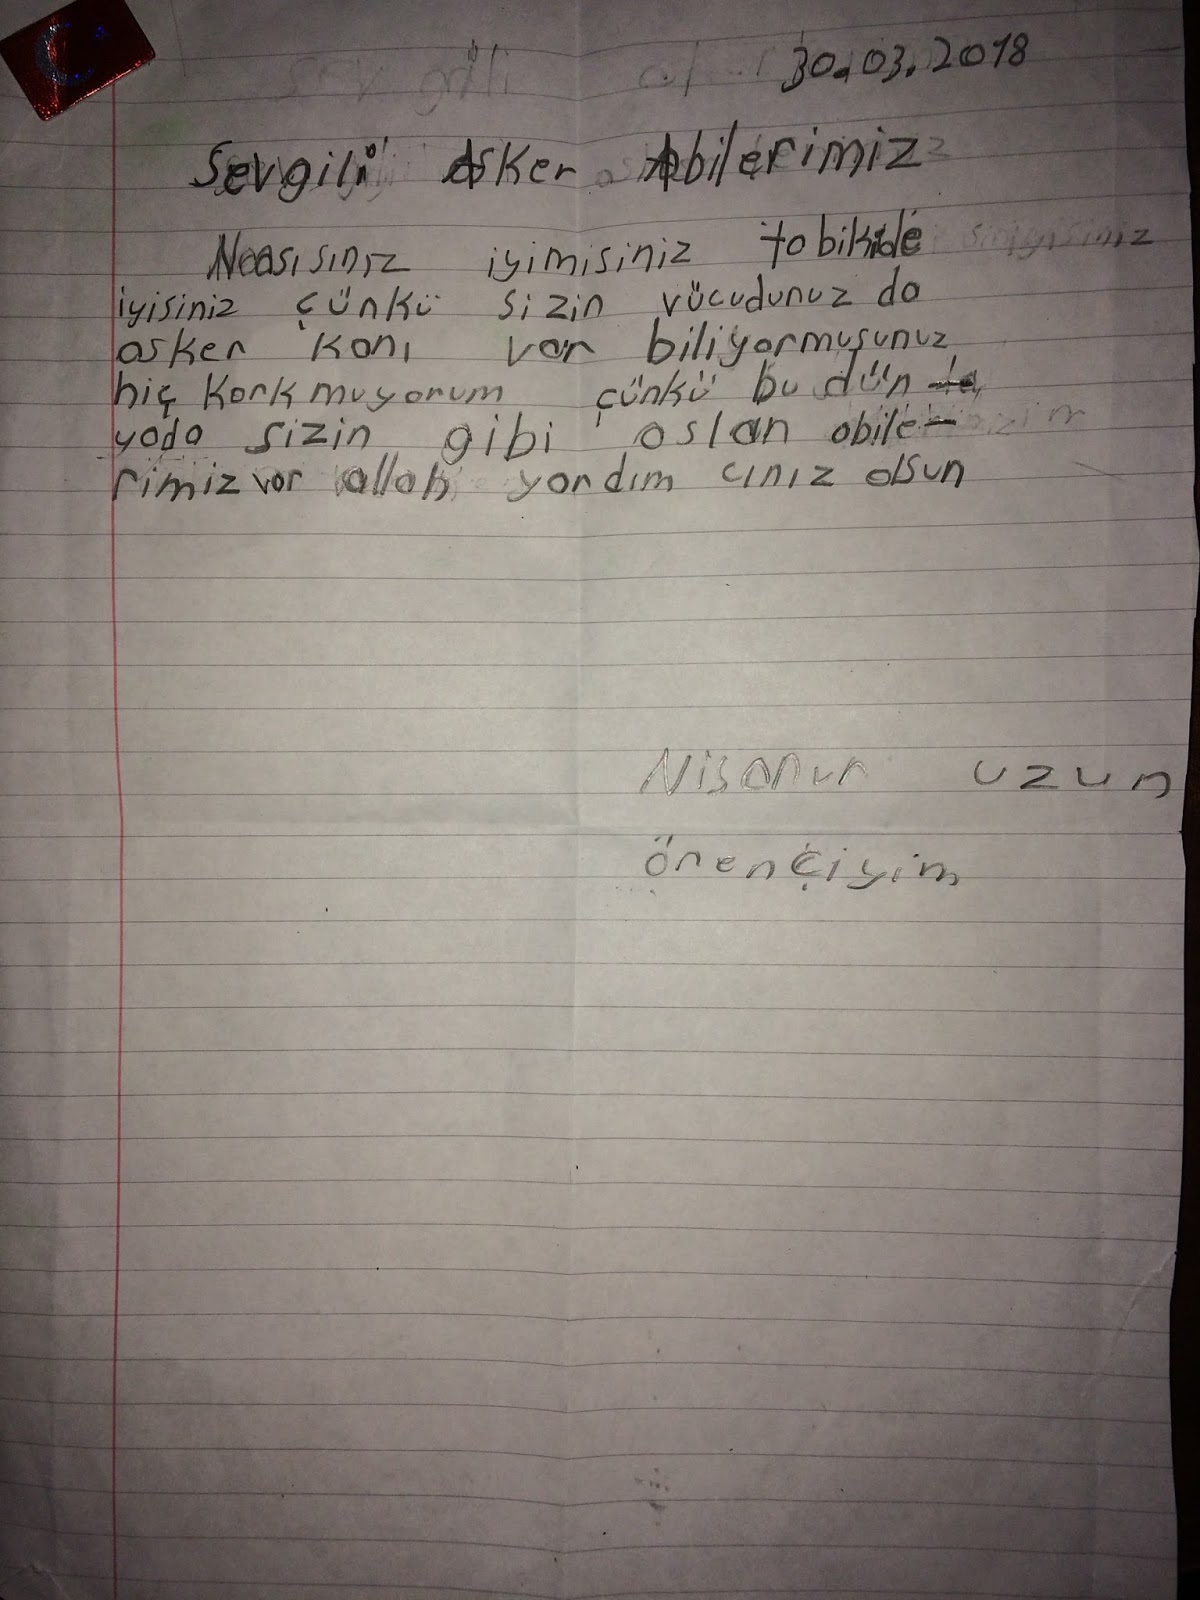 30.03.2018
Sevgili Asker Abilerimiz
Naasısınız iyimisiniz tabikide
iyisiniz çünkü sizin vücudunuz da
asker kanı var biliyormuşunuz
hiç korkmuyorum çünkü bu dün
yada sizin gibi aslan abile-
rimiz var allah yardım cınız olsun
Nisanur uzun
örençiyim